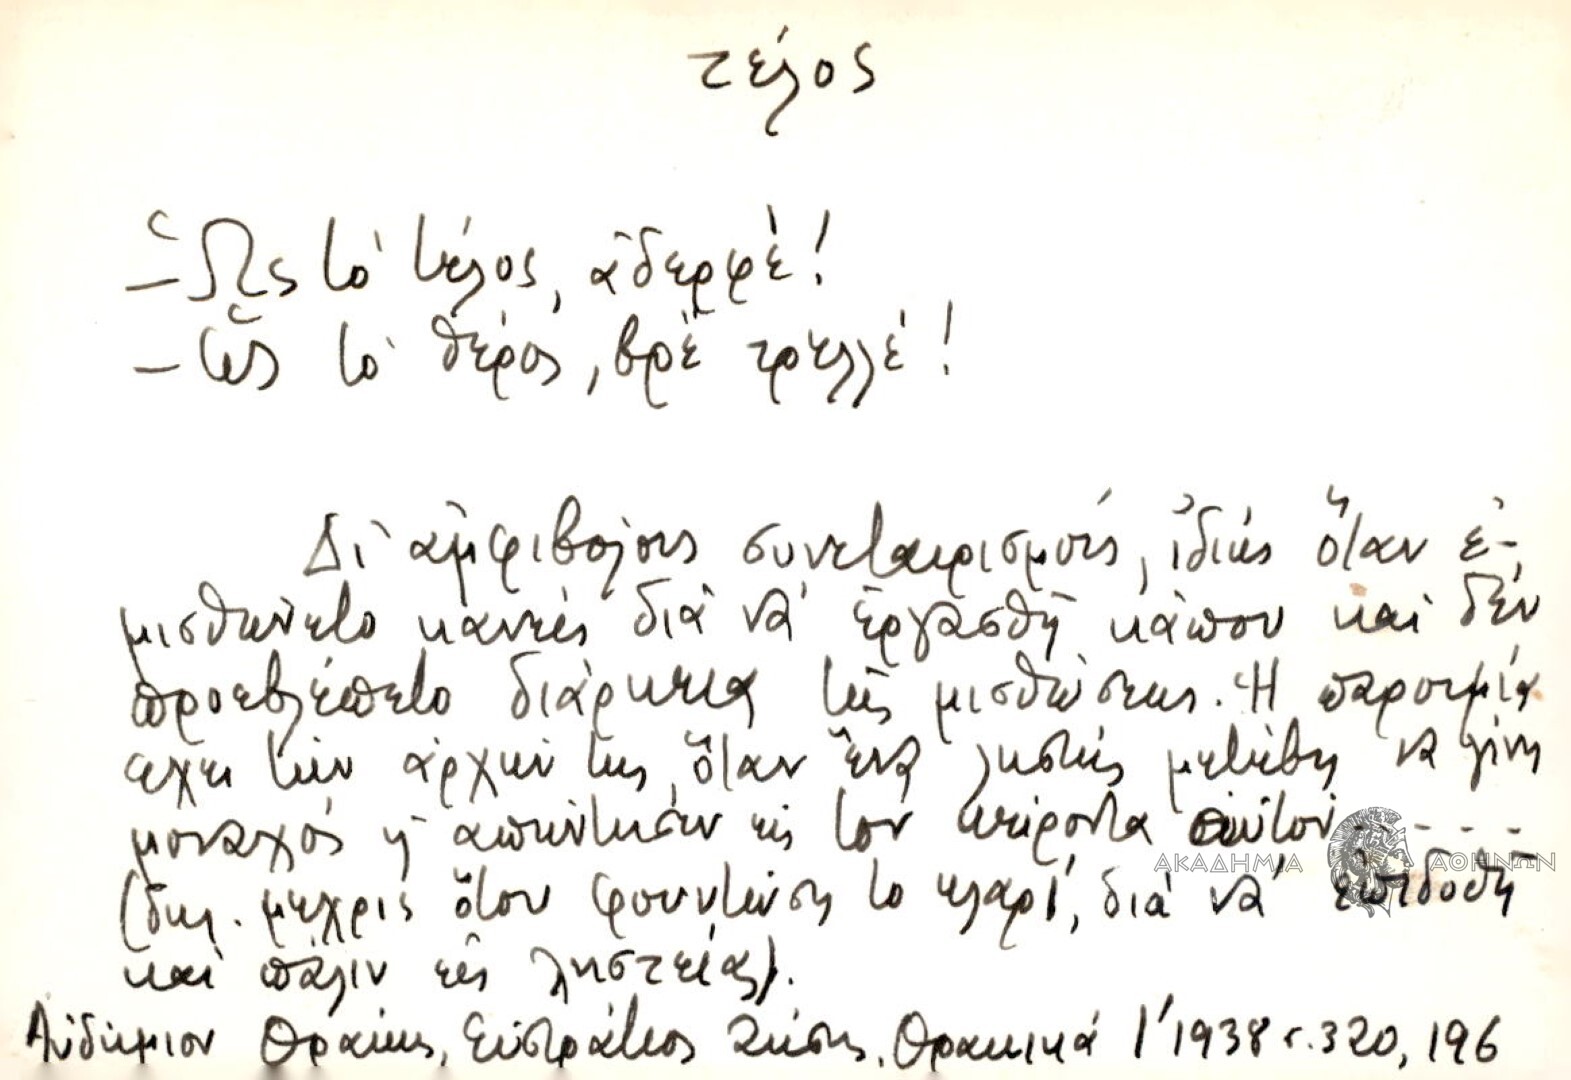 τέλος
– Ὡς τὸ τέλος, ἀδερφέ!
– Ὣς τὸ θέρος, βρὲ τρελλέ!
Δι' ἀμφιβόλους συνεταιρισμούς, ἰδίως ὅταν ἐ-
μισθώνετο κανείς διὰ νὰ ἐργασθῇ κάπου καὶ δὲν
προεβλέπετο διάρκεια τῆς μισθώσεως. Ἡ παροιμία
ἔχει τὴν ἀρχήν της, ὅταν ἕνα ληστής μετέβη να γίνη
μοναχός ἡ ἀπάντησιν εἰς τον κείροντα αὐτὸν.....
(δηλ. μέχρις ὅτου φουντώση το κλαρί, διὰ νὰ ἐπιδοθῇ
καὶ πάλιν εἰς ληστείας).
Αὐδήμιον Θράκης, Εὐστράτιος Ζήσης, Θρακικά Ι' 1938 σ. 320, 196
ΑΚΑΔΗΜΙΑ ΑΘΗΝΩΝ